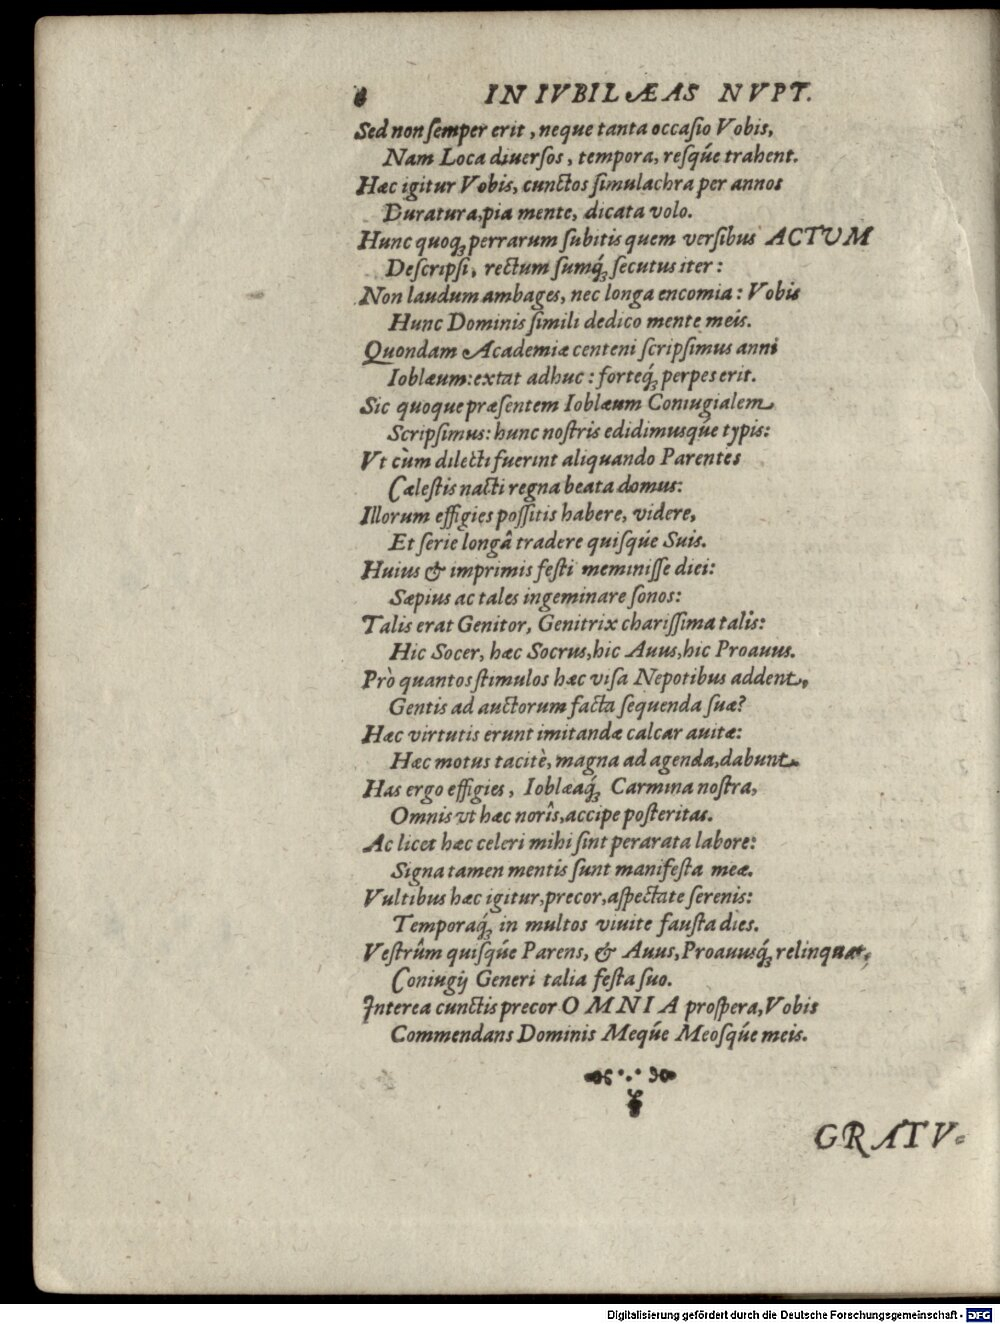 6 IN IVBILÆAS NVPT.
Sed non ſemper erit, neque tanta occaſio Vobis,
Nam Loca diuerſos, tempora, reſq́ue trahent.
Hæc igitur Vobis, cunctos ſimulachra per annos
Duratura, pia mente, dicata volo.
Hunc quoqꝫ perrarum ſubitis quem verſibus ACTUM
Deſcripſi, rectum ſumq́ꝫ ſecutus iter:
Non laudum ambages, nec longa encomia: Vobis
Hunc Dominis ſimili dedico mente meis.
Quondam Academiæ centeni ſcripſimus anni
Ioblæum: extat adhuc: forteq́ꝫ perpes erit.
Sic quoque præſentem Ioblæum Coniugialem
Scripſimus: hunc noſtris edidimusq́ue typis:
Vt cùm dilecti fuerint aliquando Parentes
Cæleſtis nacti regna beata domus:
Illorum effigies poſſitis habere, videre,
Et ſerie longâ tradere quiſq́ue Suis.
Huius & imprimis feſti meminiſſe diei:
Sæpius ac tales ingeminare ſonos:
Talis erat Genitor, Genitrix chariſſima talis:
Hic Socer, hæc Socrus, hic Avus, hic Proavus.
Prò quantos ſtimulos hæc viſa Nepotibus addent,
Gentis ad auctorum facta ſequenda ſuæ?
Hæc virtutis erunt imitandæ calcar avitæ:
Hæc motus tacitè, magna ad agenda, dabunt.
Has ergo effigies, Ioblæaq́ꝫ Carmina noſtra,
Omnis vt hæc norîs, accipe poſteritas.
Ac licet hæc celeri mihi ſint perarata labore:
Signa tamen mentis ſunt manifeſta meæ.
Vultibus hæc igitur, precor, aſpectate ſerenis:
Temporaq́ꝫ in multos viuite fauſta dies.
Veſtrûm quiſq́ue Parens, & Avus, Proavusq́ꝫ relinquat,
Coniugij Generi talia feſta ſuo.
Interea cunctis precor OMNIA proſpera, Vobis
Commendans Dominis Meq́ue Meoſq́ue meis.
GRATV-
Digitalisierung gefördert durch die Deutsche Forschungsgemeinschaft - DFG